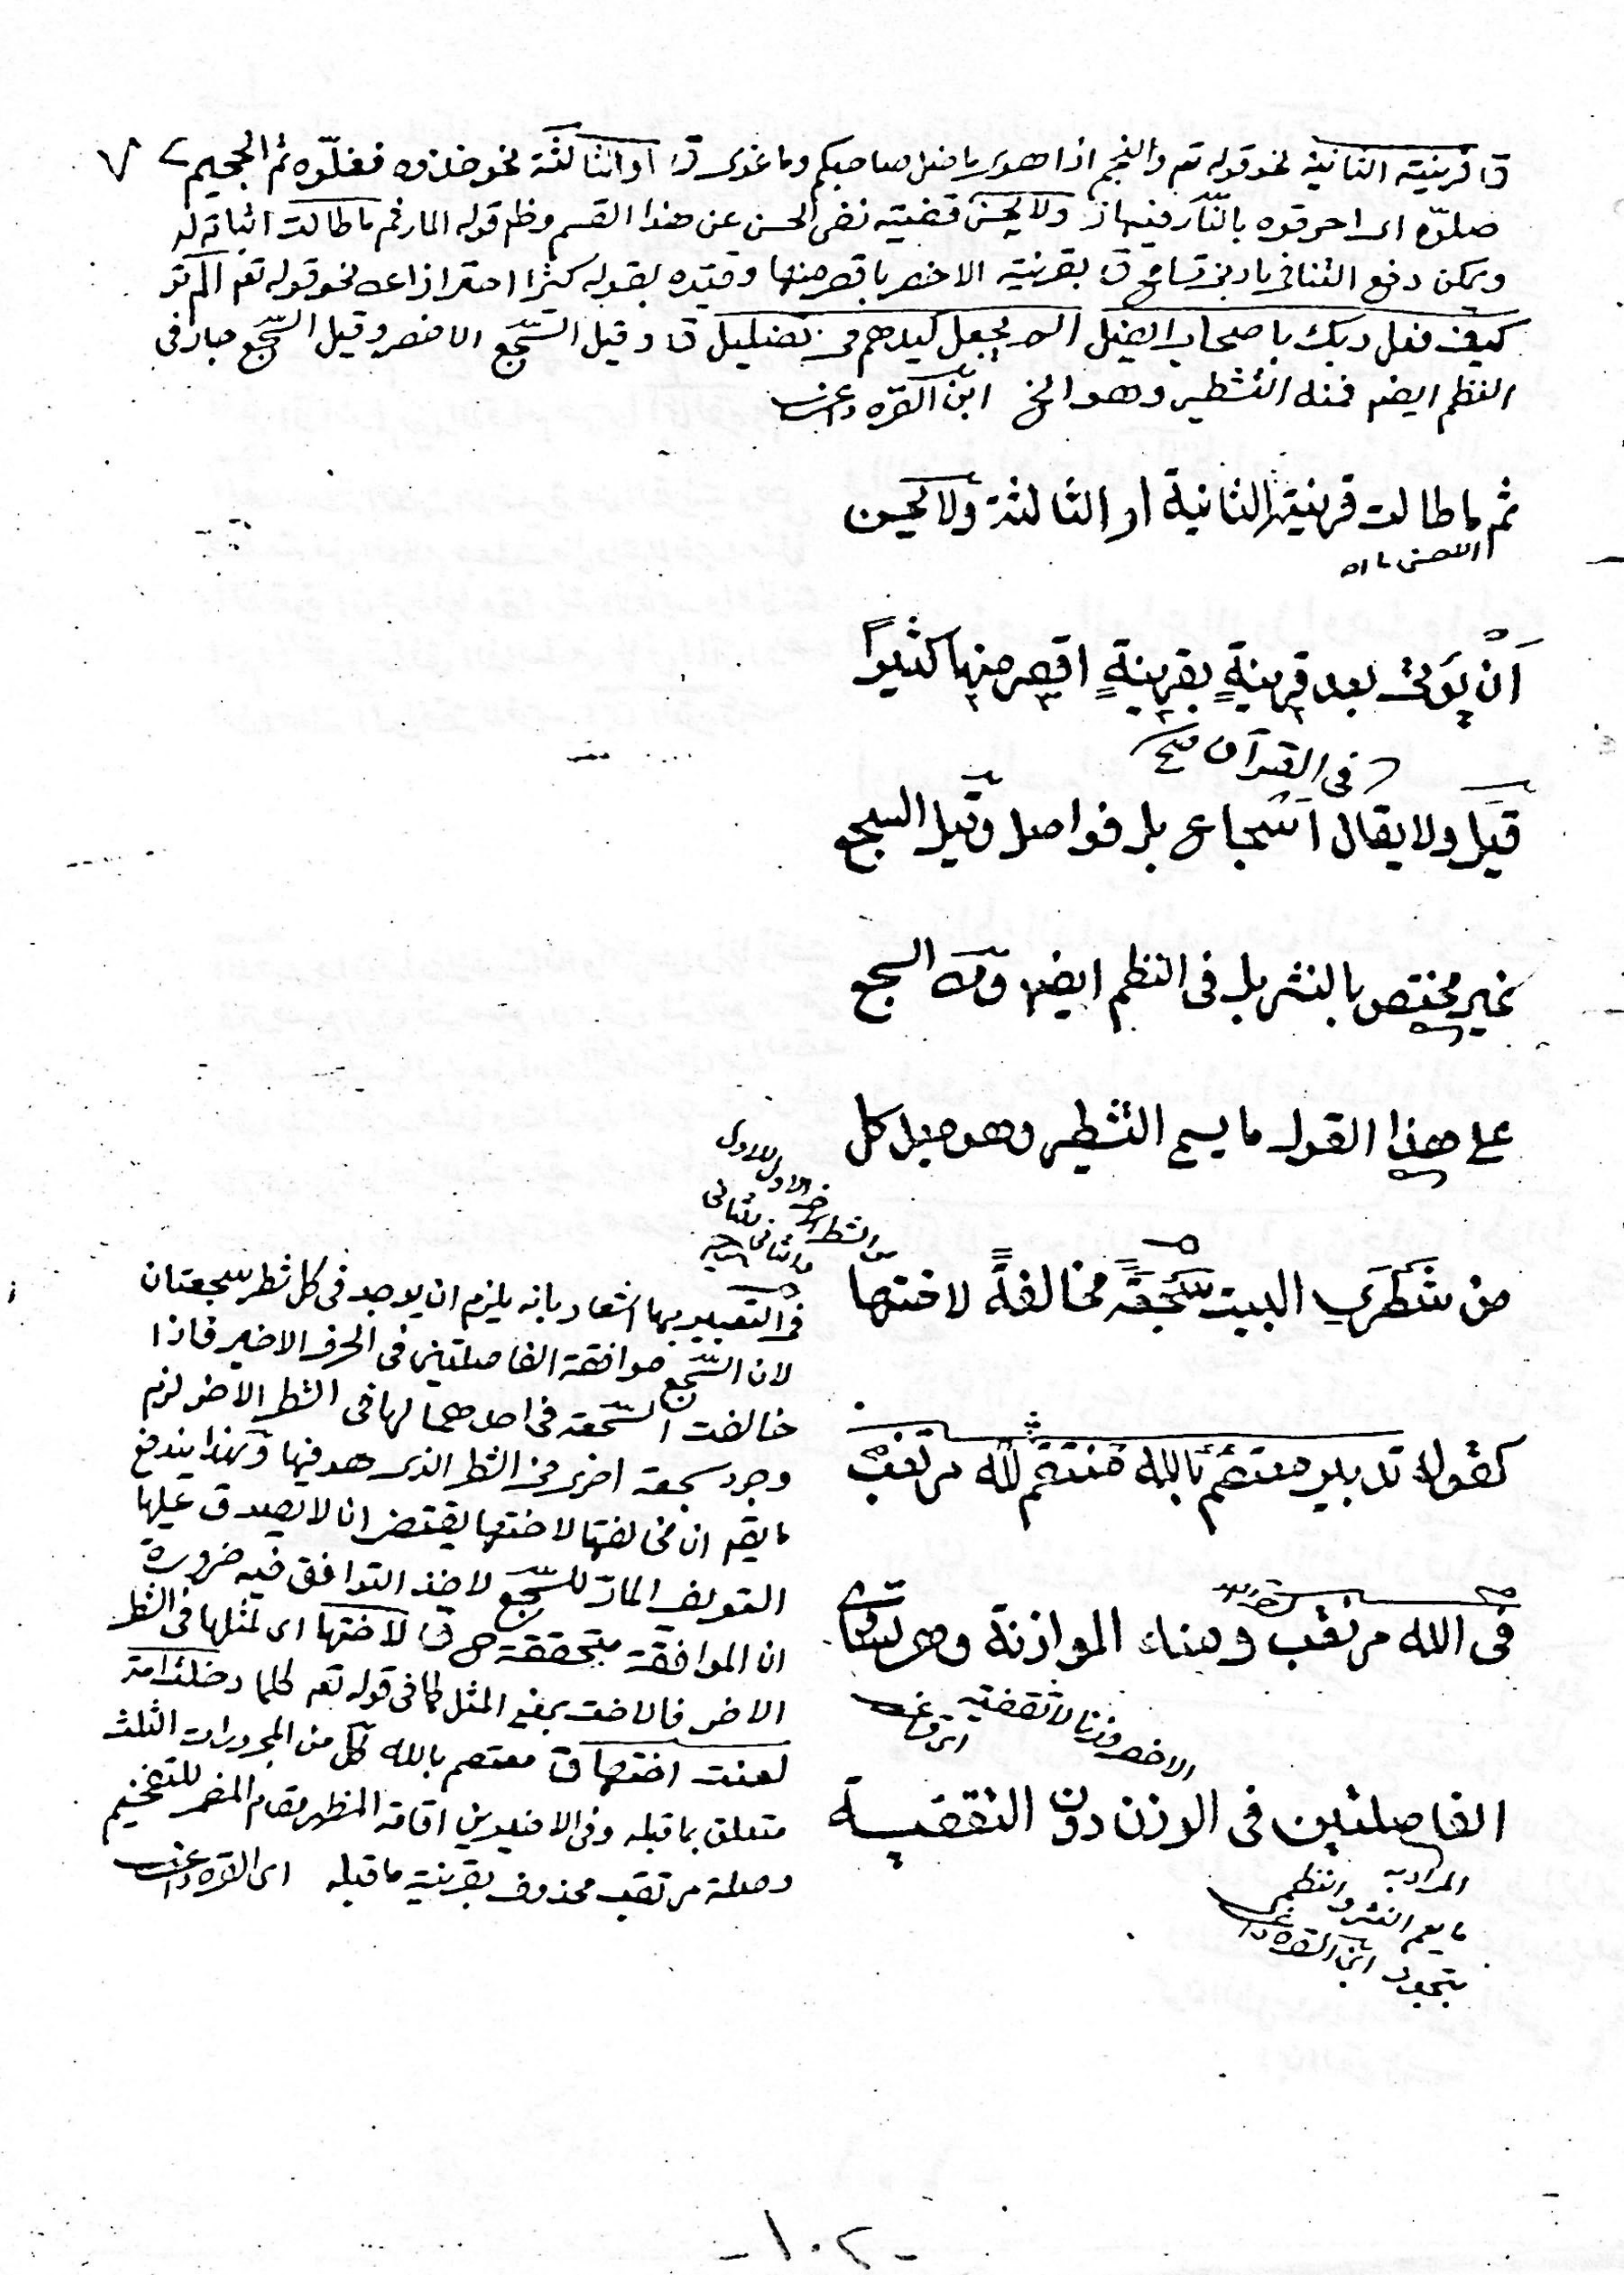 ق قرينته الثانية نحو قوله تعـ والنجم اذا هوى ما ضل صاحبكم وما غوى ق او الثالثة نحو خذوه فغلّوه ثم الجحيم ٧
صلّوه اى احرقوه بالنّار فيها ولا يحسن قضيته نفى الحسن عن هذا القسم وظ قوله المار ثم ما طالت اثباته له
ويمكن دفع التنافى بادنى تسامح ق بقرينة الاخصر باقصر منها وقيّده بقوله كثيرا احترازا عن نحو قوله تعـ الم تر
كيف فعل ربك باصحاب الفيل الم يجعل كيدهم فى تضليل ق وقيل السّجع الاخصر وقيل السّجع جار فى
النظم ايضـ فمنه التشطير وهو الخ ابن القره داغى
ثم ما طالت قرينته الثانية او الثالثة ولا يحسن
اى الاحسن ما اه
اَنْ يؤتى بعد قرينةٍ بقرينةٍ اقصر منها كثيراً
فى القرآن صح
قيل ولا يقال اسجاع بل فواصل وقيل السجع
غير مختص بالنثر بل فى النظم ايضـ ومن السجع
على هذا القول ما يسمى التشطير وهو جعل كل
من شَطْرَىِ البيت سَجْعَةً مخالفةً لاختها
فى التعبير بها اشعار بانه يلزم ان يوجد فى كل شطر سجعتان
لان السّجع موافقة الفاصلتين فى الحرف الاخير فاذا
خالفت السّجعة فى احدهما لها فى الشطر الاخر لزم
وجود سجعة اخرى فى الشطر الذى هو فيها وبهذا يندفع
ما يقـ ان مخالفتها لاختها يقتضى ان لا يصدق عليها
التعريف المارّ للسّجع لاخذ التوافق فيه ضرورة
ان الموافقة متحققة ق لاختها اى لمثلها فى الشطر
الاخر فالاخت بمعنى المثل كما فى قوله تعـ كلما دخلت امة
لعنت اختها ق معتصم بالله كل من المجرورات الثلث
متعلق بما قبله وفى الاخيرين اقامة المظهر مقام المضمر للتفخيم
وصلة مرتقب محذوف بقرينة ما قبله ابن القره داغى
كقوله تدبير معتصم بالله منتقم لله مرتغب
فى الله مرتقب ومنه الموازنة وهى تساوى
الفاصلتين فى الوزن دون التقفية
المراد به
ما يعم النثر والنظم
ابن القره داغى
-١٠٢-